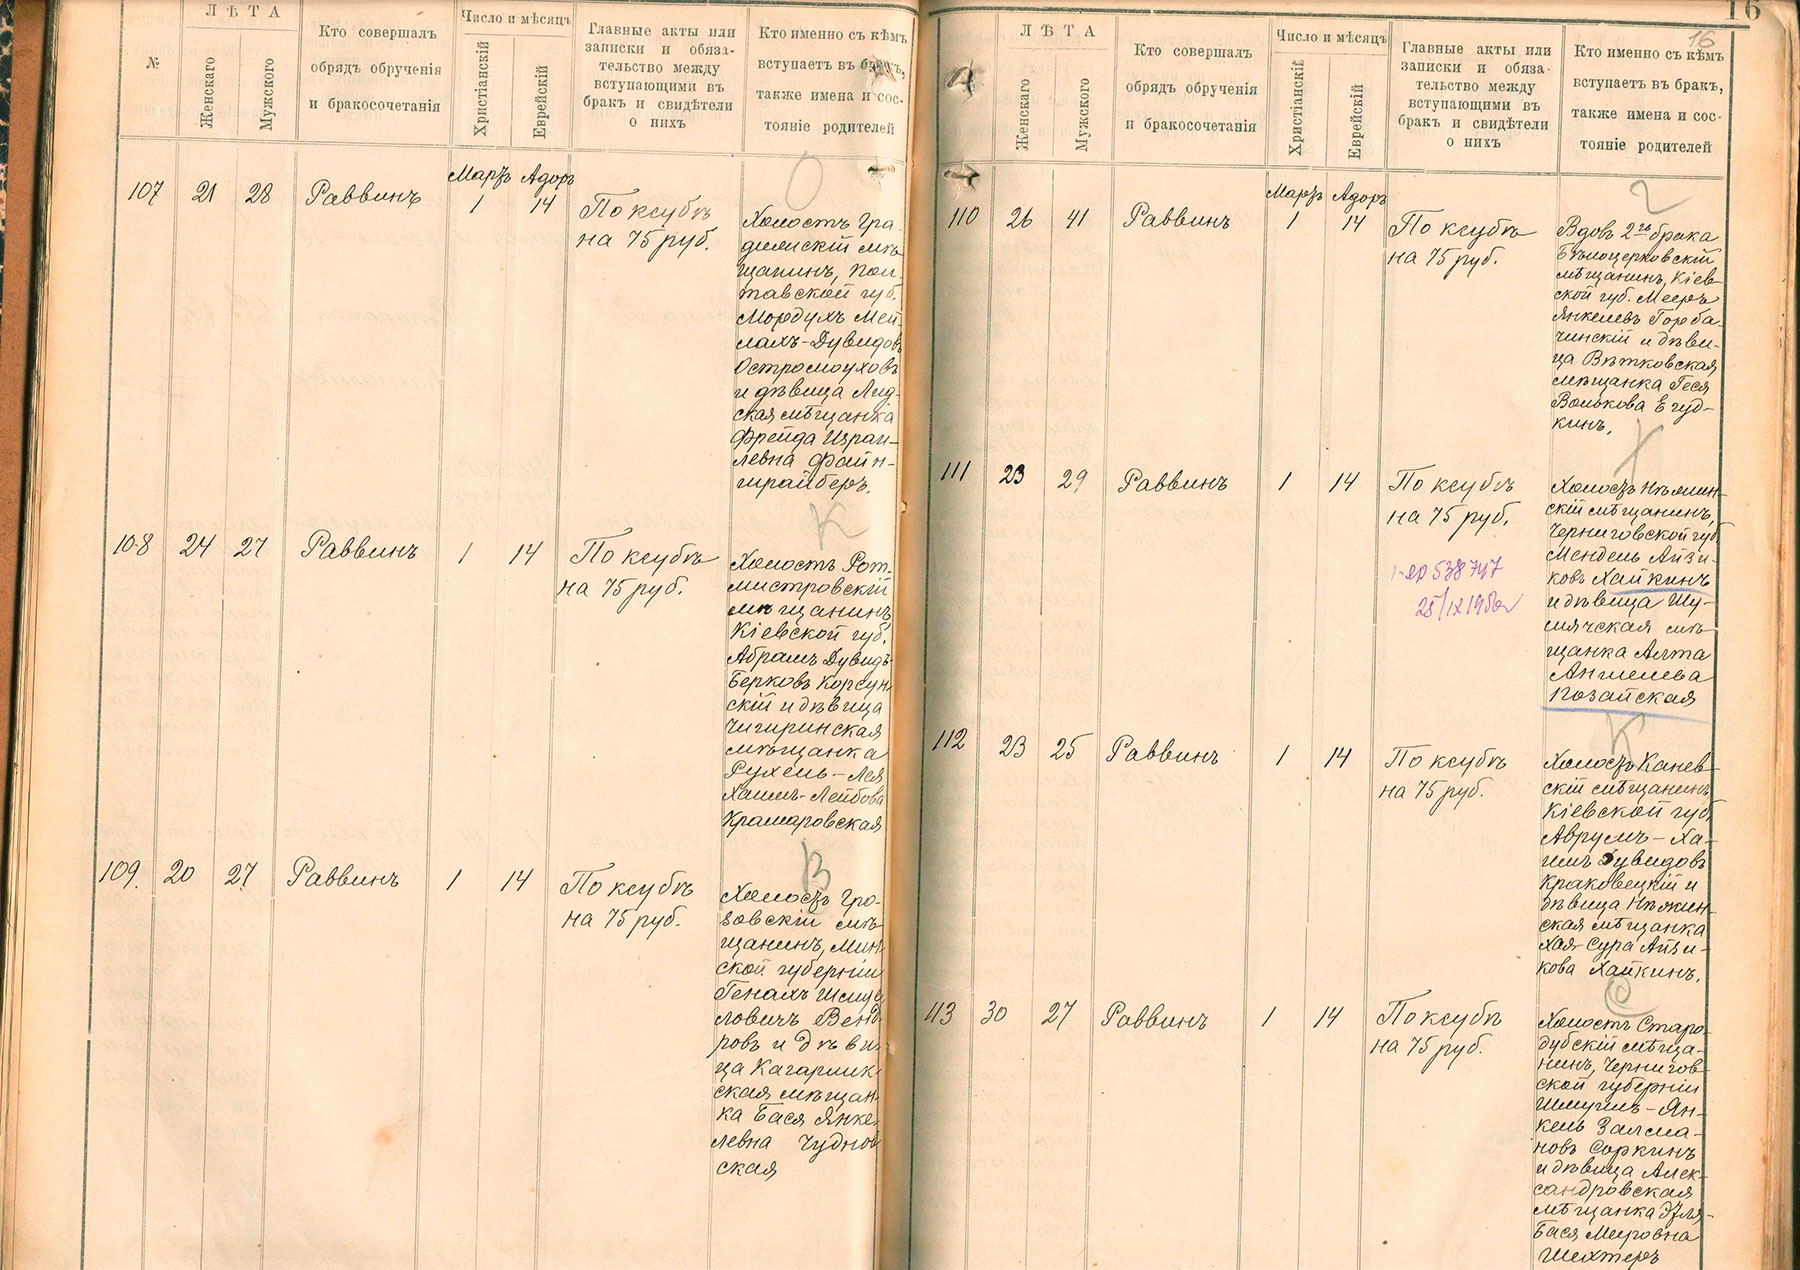 №
ЛѢТА
Женскаго
Мужского
Кто совершалъ
обрядъ обрученія
и бракосочетанія
Число и мѣсяцъ
Христіанскій
Еврейскій
Главные акты или
записки и обяза-
тельство между
вступающими въ
бракъ и свидѣтели
о нихъ
Кто именно съ кѣмъ
вступаетъ въ бракъ,
также имена и сос-
тояніе родителей
Мартъ Адоръ
О
107 21 28 Раввинъ 1 14 По ксубѣ
на 75 руб.
Холостъ Гра-
дижскій мѣ-
щанинъ, Пол-
тавской губ.
Мордухъ Мей-
лахъ-Дувидовъ
Остромоуховъ
и дѣвица Лид-
ская мѣщанка
Фрейда Израи-
левна Файн-
шрайберъ.
К
108 24 27 Раввинъ 1 14 По ксубѣ
на 75 руб.
Холостъ Рот-
мистровскій
мѣщанинъ,
Кіевской губ.
Абрамъ Дувидъ
Берковъ Корсун-
скій и дѣвица
Чигиринская
мѣщанка
Рухель-Лея
Хаимъ-Лейбова
Крамаровская
В
109. 20 27 Раввинъ 1 14 По ксубѣ
на 75 руб.
Холостъ Гро-
зовскій мѣ-
щанинъ, Мин-
ской губерніи
Генахъ Шмуе-
ловичъ Венд-
ровъ и дѣви-
ца Кагарлик-
ская мѣщан-
ка Бася Янке-
левна Чуднов-
ская
16
16
ЛѢТА
Женскаго
Мужского
Кто совершалъ
обрядъ обрученія
и бракосочетанія
Число и мѣсяцъ
Христіанскій
Еврейскій
Главные акты или
записки и обяза-
тельство между
вступающими въ
бракъ и свидѣтели
о нихъ
Кто именно съ кѣмъ
вступаетъ въ бракъ,
также имена и сос-
тояніе родителей
Мартъ Адоръ
Г
110 26 41 Раввинъ 1 14 По ксубѣ
на 75 руб.
Вдовъ 2го брака
Бѣлоцерковскій
мѣщанинъ, Кіев-
ской губ. Мееръ
Янкелевъ Горба-
чинскій и дѣви-
ца Вѣтковская
мѣщанка Геся
Волькова Егуд-
кинъ.
Х
111 23 29 Раввинъ 1 14 По ксубѣ
на 75 руб.
538747
25/IX 1950
Холостъ Нѣжин-
скій мѣщанинъ,
Черниговской губ
Мендель Айзи-
ковъ Хайкинъ
и дѣвица Шу-
мячская мѣ-
щанка Алта
Аншелева
Позайская
К
112 23 25 Раввинъ 1 14 По ксубѣ
на 75 руб.
Холостъ Канев-
скій мѣщанинъ,
Кіевской губ.
Аврумъ-Ха-
имъ Дувидовъ
Краковецкій и
дѣвица Нѣжин-
ская мѣщанка
Хая-Сура Айзи-
кова Хайкинъ.
С
113 30 27 Раввинъ 1 14 По ксубѣ
на 75 руб.
Холостъ Старо-
дубскій мѣща-
нинъ, Чернигов-
ской губерніи
Шмуилъ-Ян-
кель Залма-
новъ Соркинъ
и дѣвица Алек-
сандровская
мѣщанка Этля-
Бася Меировна
Шехтеръ